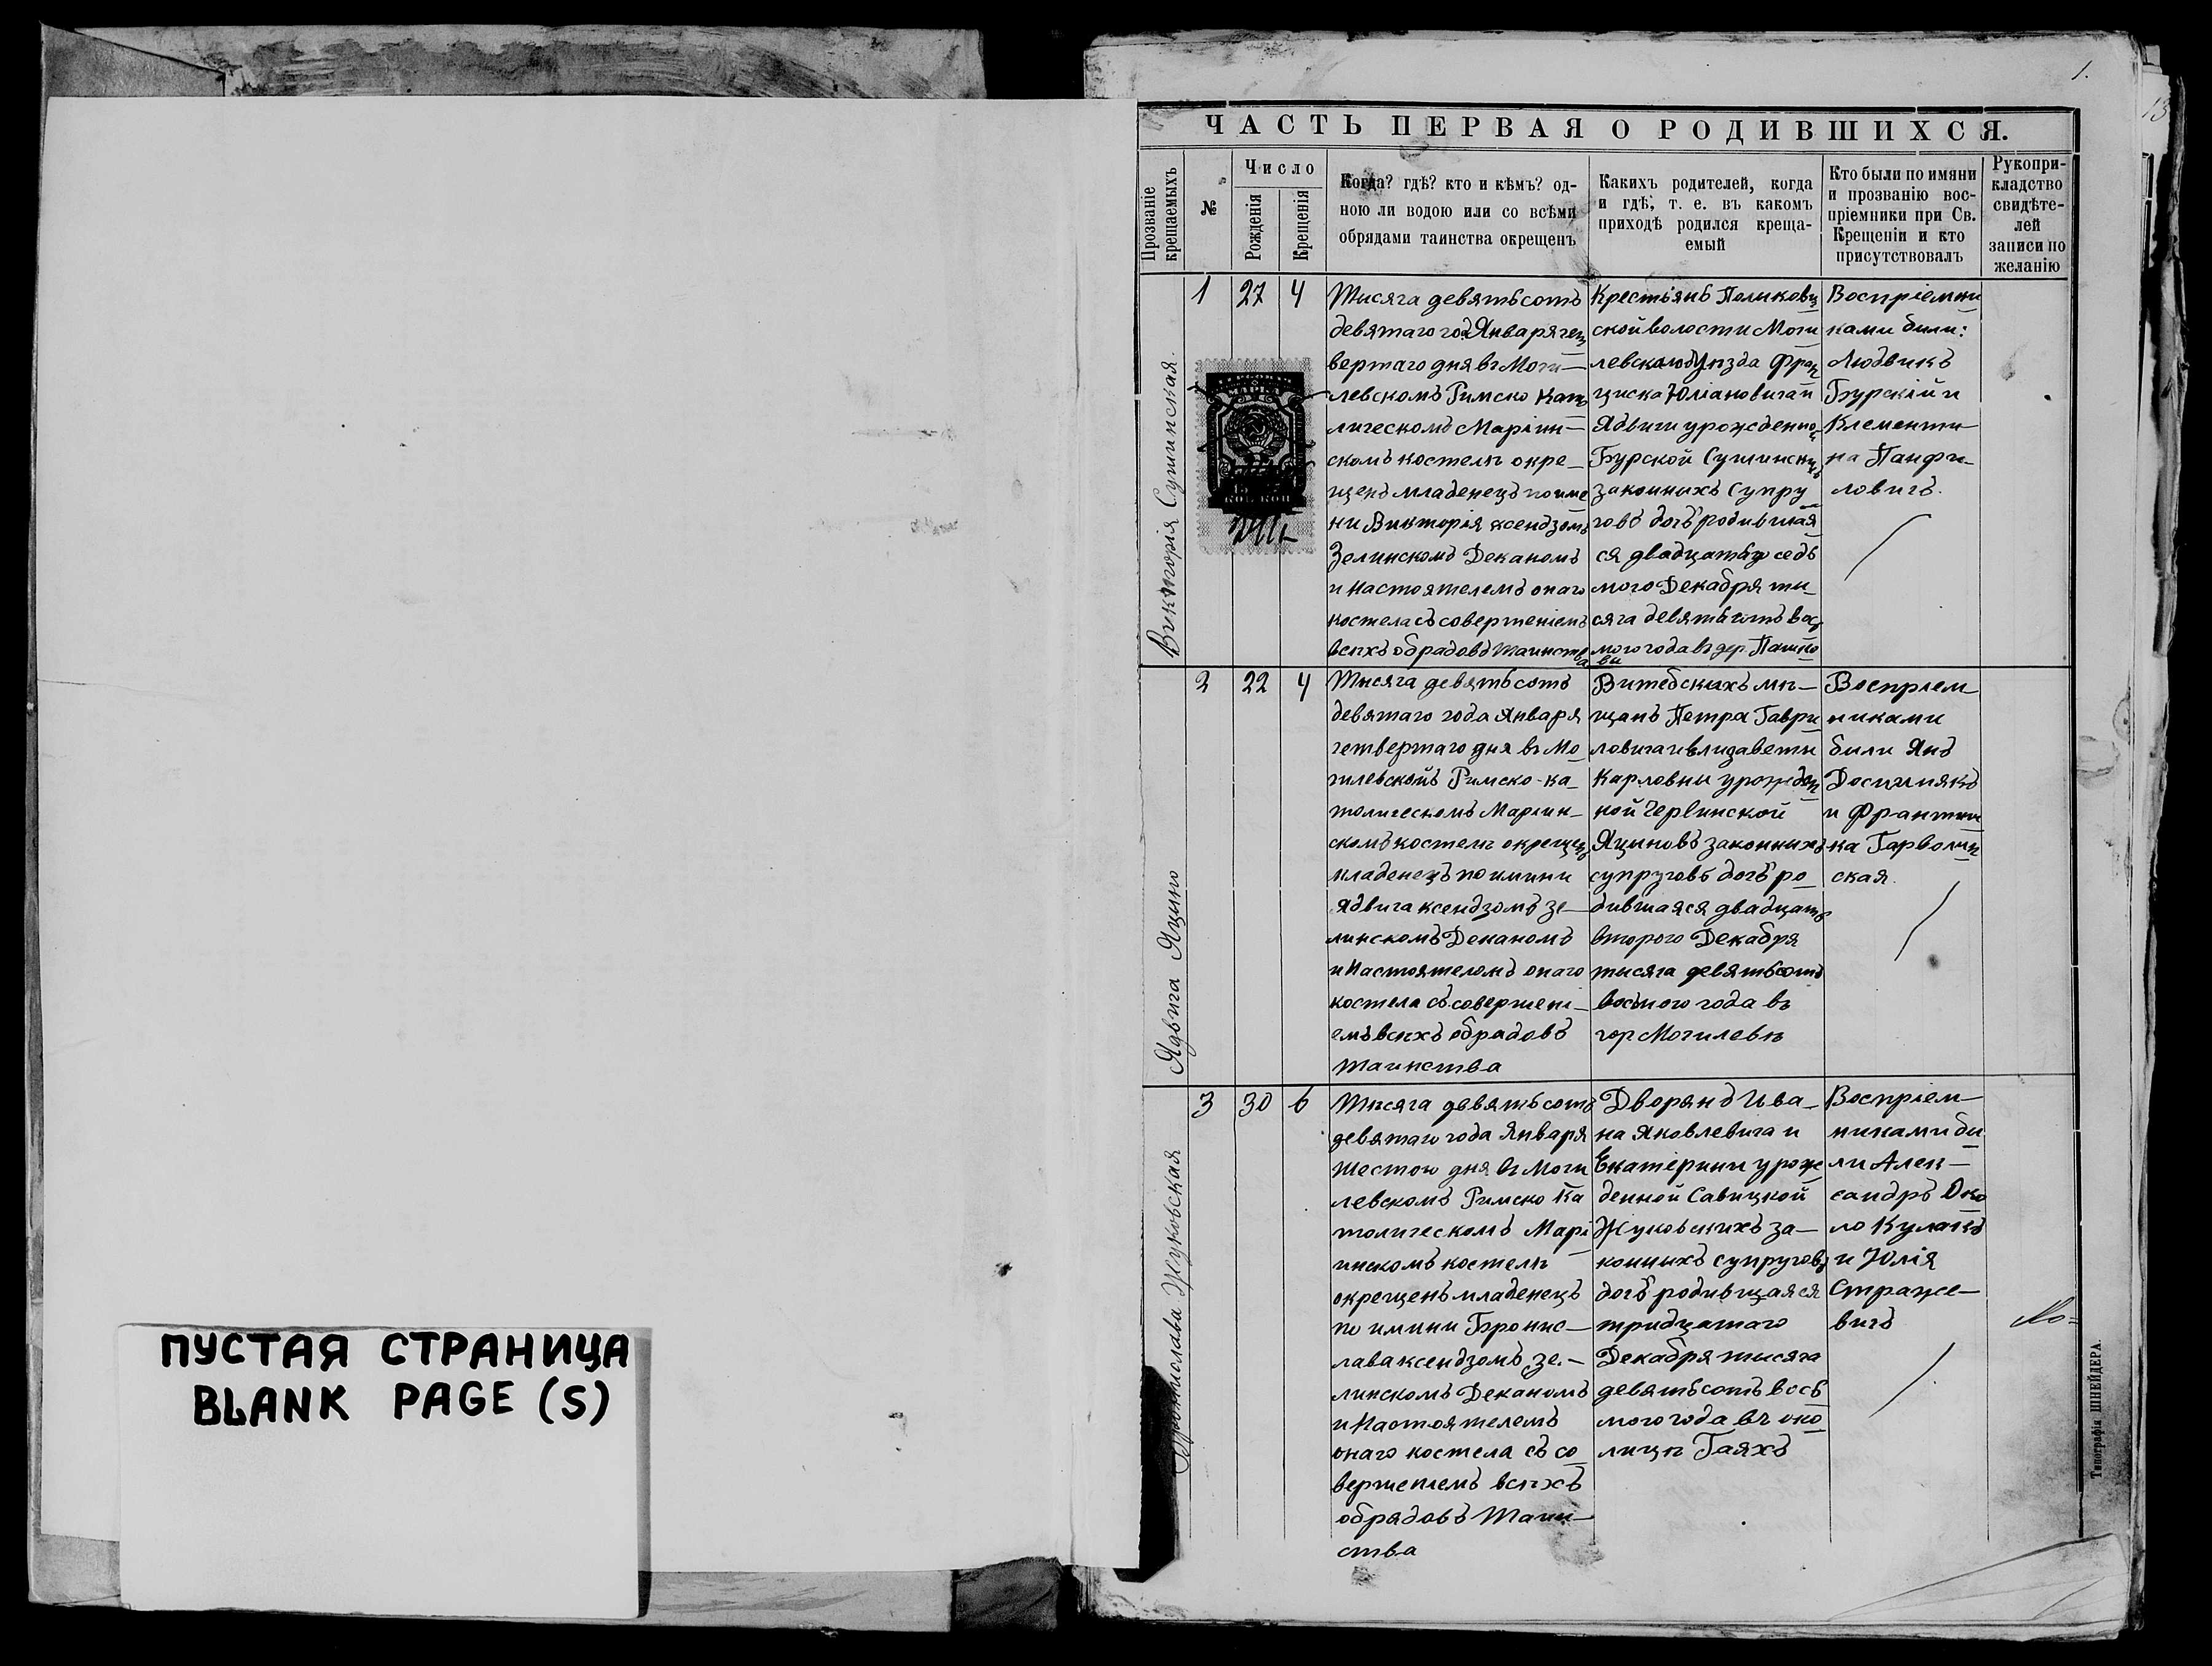 ПУСТАЯ СТРАНИЦА
BLANK PAGE (S)
1.
13
ЧАСТЬ ПЕРВАЯ О РОДИВШИХСЯ.
Прозваніе
крещаемыхъ
№
Число
Рожденія
Крещенія
Когда? гдѣ? кто и кѣмъ? од-
ною ли водою или со всѣми
обрядами таинства окрещенъ
Каких родителей, когда
и гдѣ, т. е. въ какомъ
приходѣ родился креща-
емый
Кто были по имяни
и прозванію вос-
пріемники при Св.
Крещеніи и кто
присутствовалъ
Рукопри-
кладство
свидѣте-
лей
записи по
желанію
Викторія Сушинская.
1
27
4
Тысяча девятьсотъ
девятаго год Января чет
вертаго дня въ Моги—
левскомъ Римско Като
лическомъ Маріин—
скомъ костелѣ окре—
щенъ младенецъ по име
ни Викторія ксендзомъ
Зелинскомъ Деканомъ
и Настоятелемъ онаго
костела съ совершеніемъ
всѣхъ обрадовъ Таинства
Крестьянъ Полыковиц
ской волости Моги
левского Уѣзда Фран
циска Юліановича и
Ядвиги урожденной
Бурской Сушинскихъ
законныхъ Супру
говъ дочъ родившая
ся двадцать седь
мого Декабря ты—
сяча девятьсотъ вось
мого года въ дер. Пашко
ви
Воспріемни
ками били:
Людвикъ
Бурскій и
Клементи—
на Панфи—
ловичъ.
Ядвига Яцыно
2
22
4
Тысяча девятьсотъ
девятаго года Января
четвертаго дня въ Мо
гилевскомъ Римско-ка—
толическомъ Маріин—
скомъ костелѣ окрещенъ
младенецъ по имини
Ядвига ксендзомъ Зе—
линскомъ Деканомъ
и Настоятеломъ онаго
костела съ совершені—
емъ всѣхъ обрадовъ
Таинства
Витебскихъ мѣ—
щанъ Петра Гаври
ловича и Елизаветы
Карловны урожден
ной Червинской
Яциновъ законныхъ
супруговъ дочъ ро—
дившаяся двадцать
второго Декабря
тысяча девятьсотъ
восьмого года въ
гор Могилевѣ
Воспріем—
никами
били Янъ
и Франтиш
ка Гарволин
ская.
Жуковская
3
30
6
Тысяча девятьсотъ
девятаго года Января
Шестого дня въ Моги
левскомъ Римско Ка
толическомъ Марі
инскомъ костелѣ
окрещенъ младенецъ
по имини Бронис—
лава ксендзомъ Зе—
линскомъ Деканомъ
и Настоятелемъ
онаго костела съ со
вершеніемъ всѣхъ
обрядовъ Таин—
ства
Дворянъ Ива—
на Яковлевича и
Екатерини урож
денной Савицкой
Жуковскихъ за—
конныхъ супруговъ
дочъ родившаяся
тридцатаго
Декабря тысяча
девятьсотъ вось
мого года въ око
лицѣ Гаяхъ
Воспріем—
никами би
ли Алек—
сандръ Око
ло Кулакъ
и Юлія
Страже—
вичъ
Типографія ШНЕЙДЕРА.